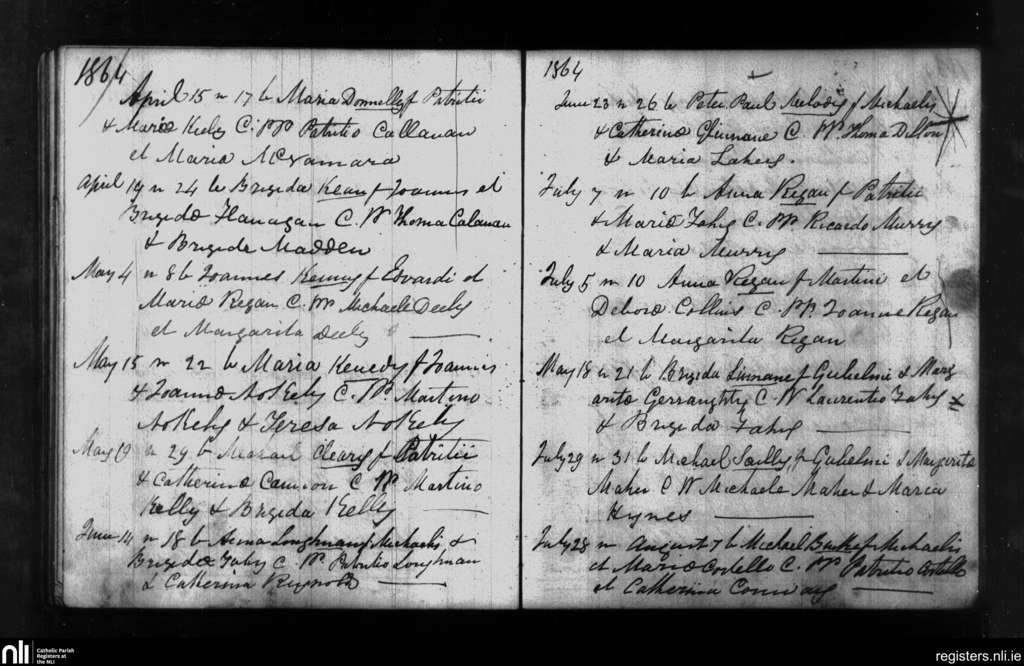 1864
April 15 n 17 b Maria Donnelly f Patritii
& Mariæ Keely C. PP Patritio Callanan
et Maria McNamara
April 19 n 24 b Brigida Kean f Joannis et
Brigidæ Flanagan C. PP Thoma Calanan
& Brigida Madden
May 4 n 8 b Joannes Kenny f Edvardi et
Mariæ Regan C. PP Michaele Deely
et Margarita Deely
May 15 n 22 b Maria Kenedy f Joannis
& Joannæ C. PP Martino
& Teresa
May 19 n 29 b Cleary f Patritii
& Catherinæ Cannon C PP Martino
Kelly & Brigida Kelly
June 14 n 18 b Anna Loughnan f Michaelis &
Brigidæ Fahy C. PP. Patritio Loughnan
& Catherina
1864
June 23 n 26 b Peter Paul Melody f Michaelis
& Catherinæ C PP. Thoma
& Maria Lahey.
July 7 n 10 b Anna Regan f Patritii
& Mariæ Fahy C. PP Ricardo Murry
& Maria Murry
July 5 n 10 Anna Regan f Martini et
Deboræ Collins C. PP Joanne Regan
et Margarita Regan
May 18 n 21 b Brigida Linnane f Gulielmi & Marg
aritæ Gerraughty C PP Laurentio Fahy
& Brigida Fahy
July 29 n 31 b Michael Scully f Gulielmi & Margaritæ
Maher C PP Michaele Maher & Maria
Hynes
July 28 n August 7 b Michael Burke f Michaelis
et Mariæ Costello C. PP Patritio Costello
et Catherina Conway
nli
Catholic Parish
Registers at
the NLI
registers.nli.ie